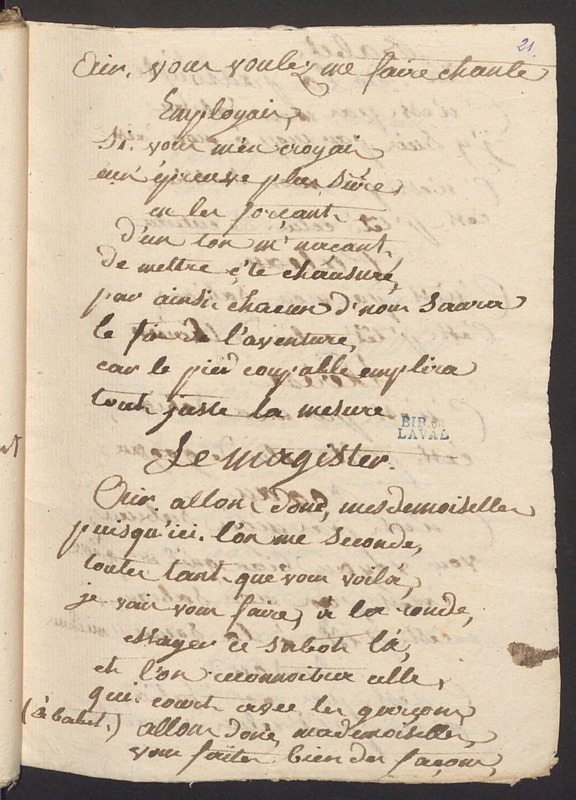 21
Air. vous voulez me faire chante
Employair,
Si vous m'en croyair
un' épreuve plus sûre,
en les forcant
d'un ton m'nacant,
de mettre c'te chaussure,
par ainsi chacun d'nous saura
le fin de l'aventure,
car le pied coupable emplira
tout juste la mesure
BIB. de
LAVAL
Le magister.
Air. allons donc, mesdemoiselles
puisqu'ici l'on me seconde,
toutes tant que vous voila,
je vais vous faire, à la ronde,
essayer ce sabot là,
et l'on reconnoitra celle,
qui court avec les garcons,
(à babet.) allons donc, mademoiselle,
vous faites bien des façons,